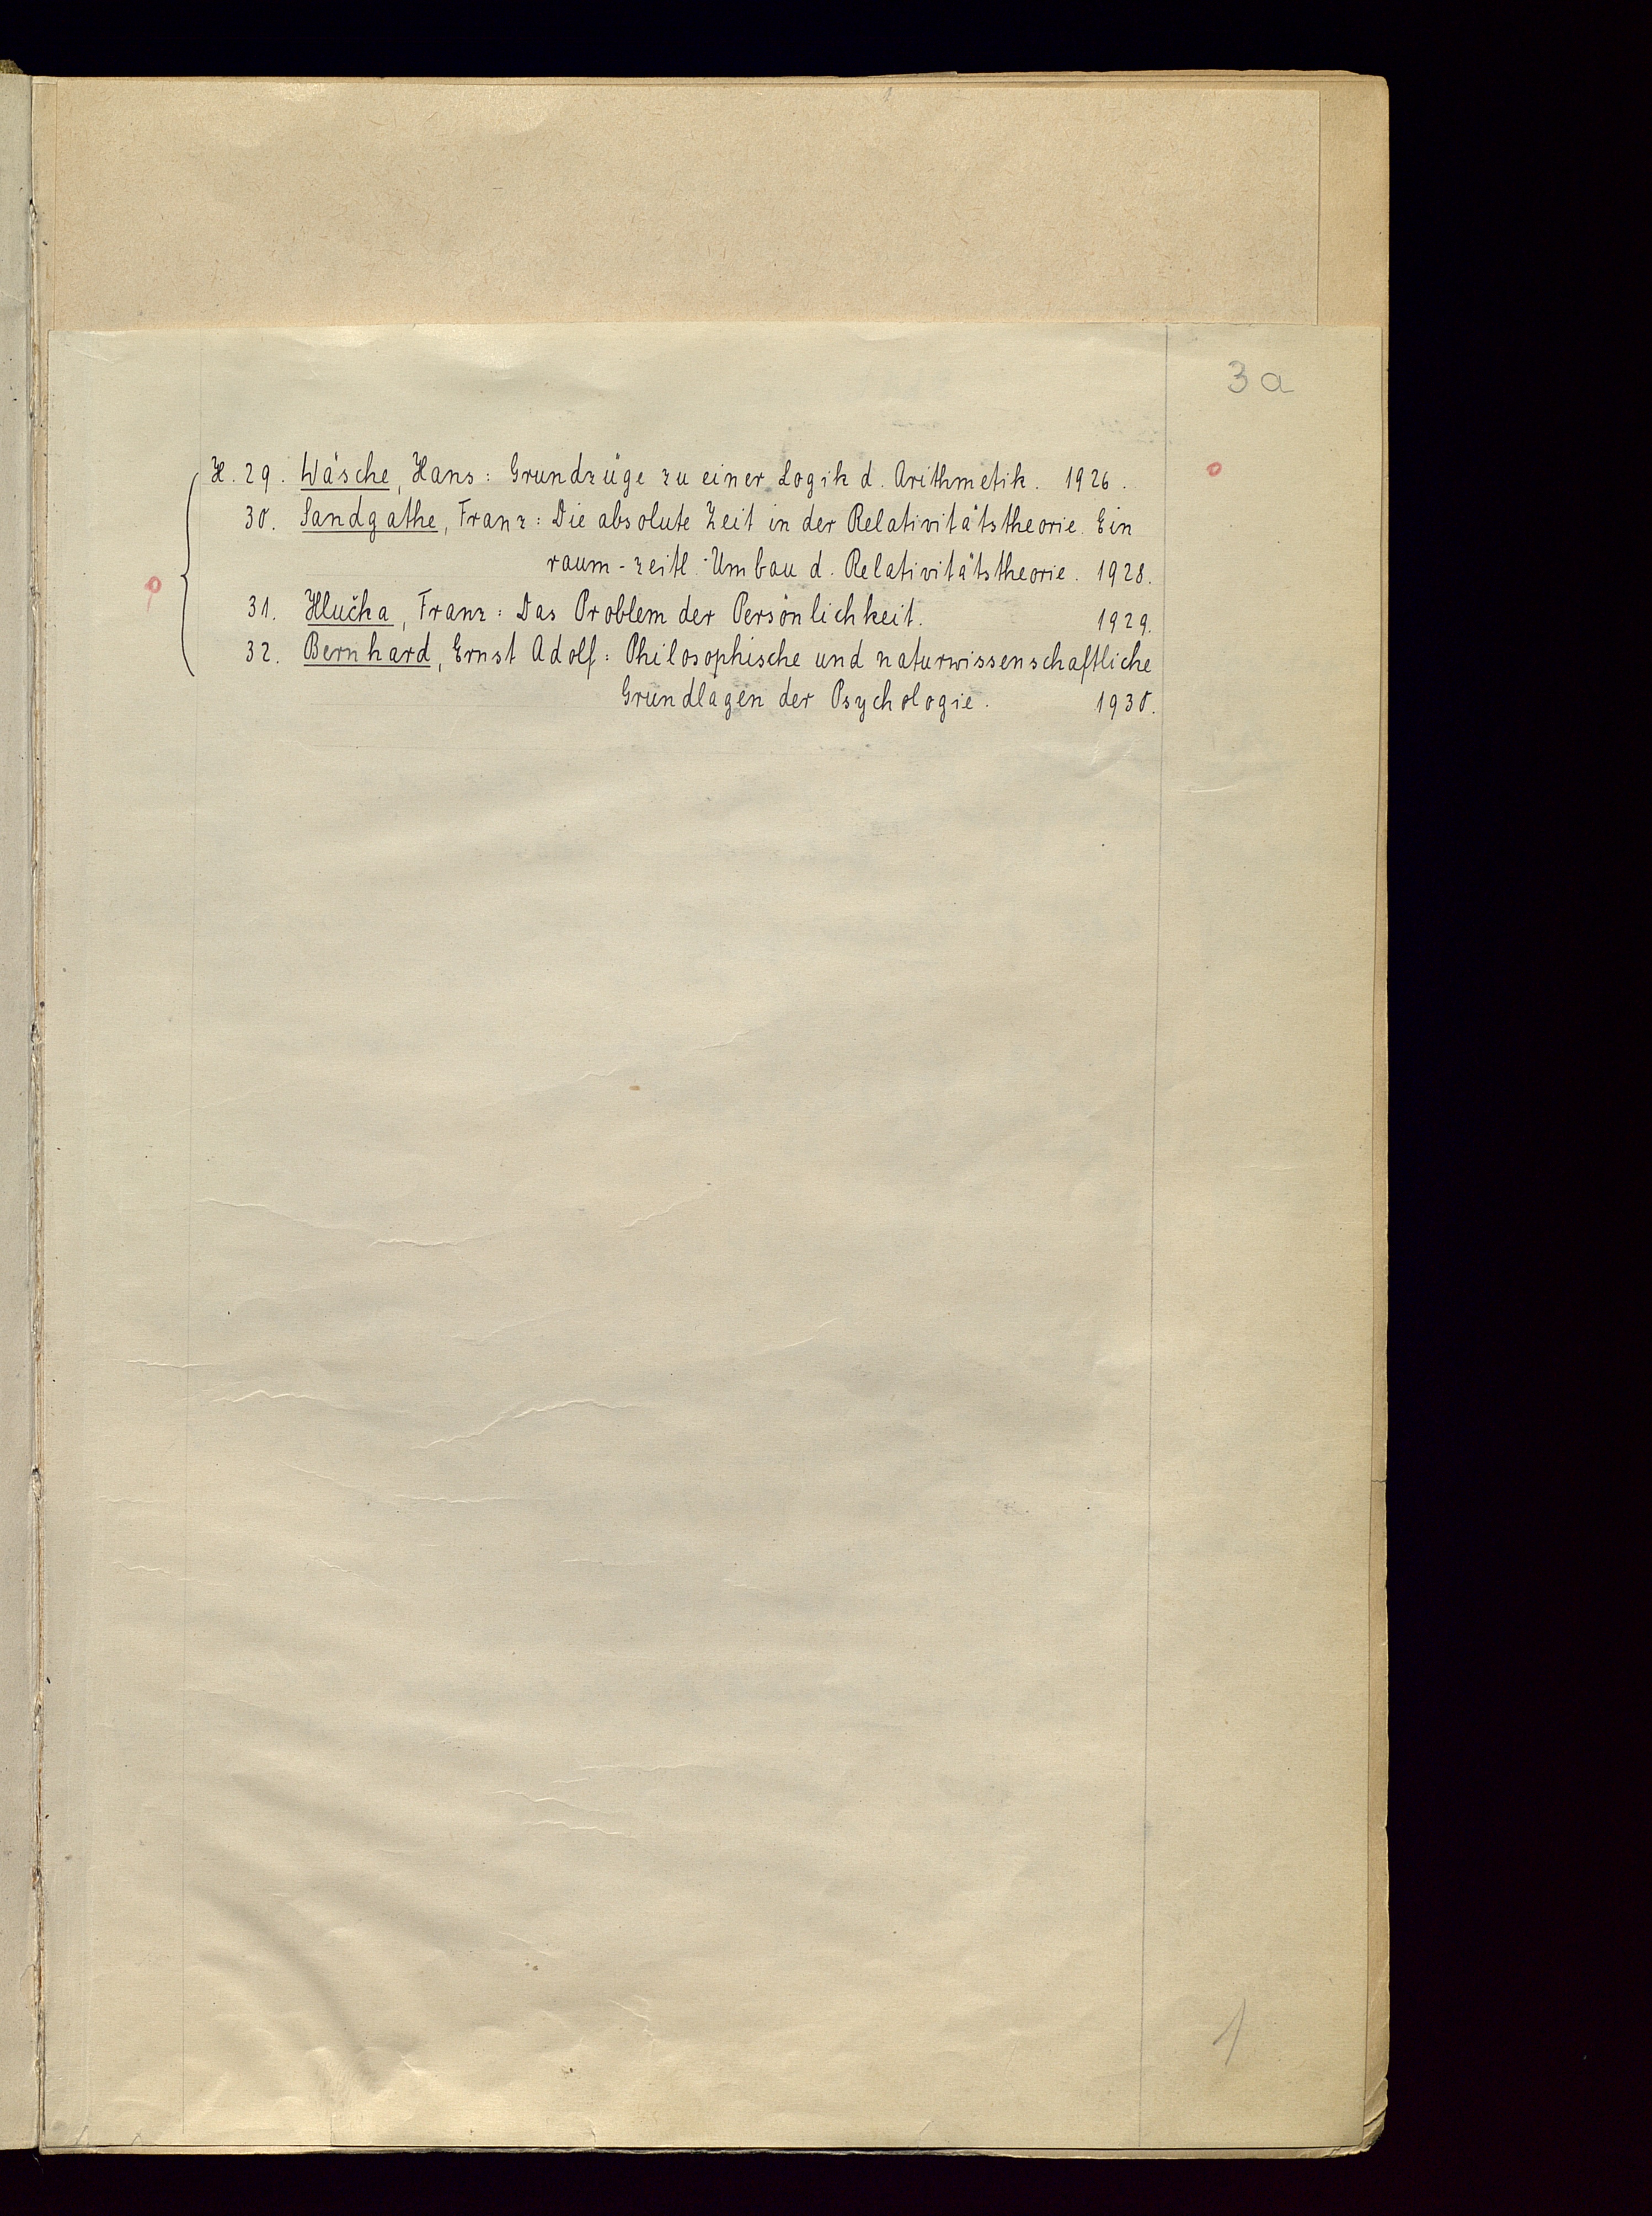 3a
H. 29. Wäsche, Hans: Grundzüge zu einer Logik d. Arithmetik. 1926.
30. Sandgathe, Franz: Die absolute Zeit in der Relativitätstheorie. Ein
raum-zeitl. Umbau d. Relativitätstheorie. 1928.
31. Hlučka, Franz: Das Problem der Persönlichkeit. 1929.
32. Bernhard, Ernst Adolf: Philosophische und naturwissenschaftliche
Grundlagen der Psychologie. 1930.
1